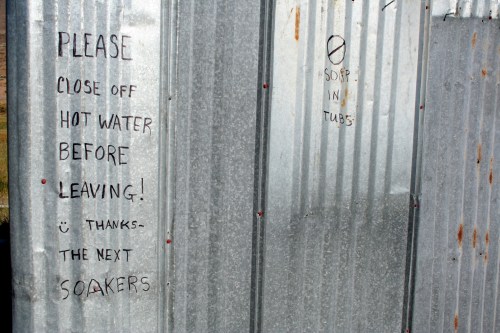 PLEASE
CLOSE OFF
HOT WATER
BEFORE
LEAVING!
THANKS-
THE NEXT
SOAKERS
SOAP
IN
TUBS